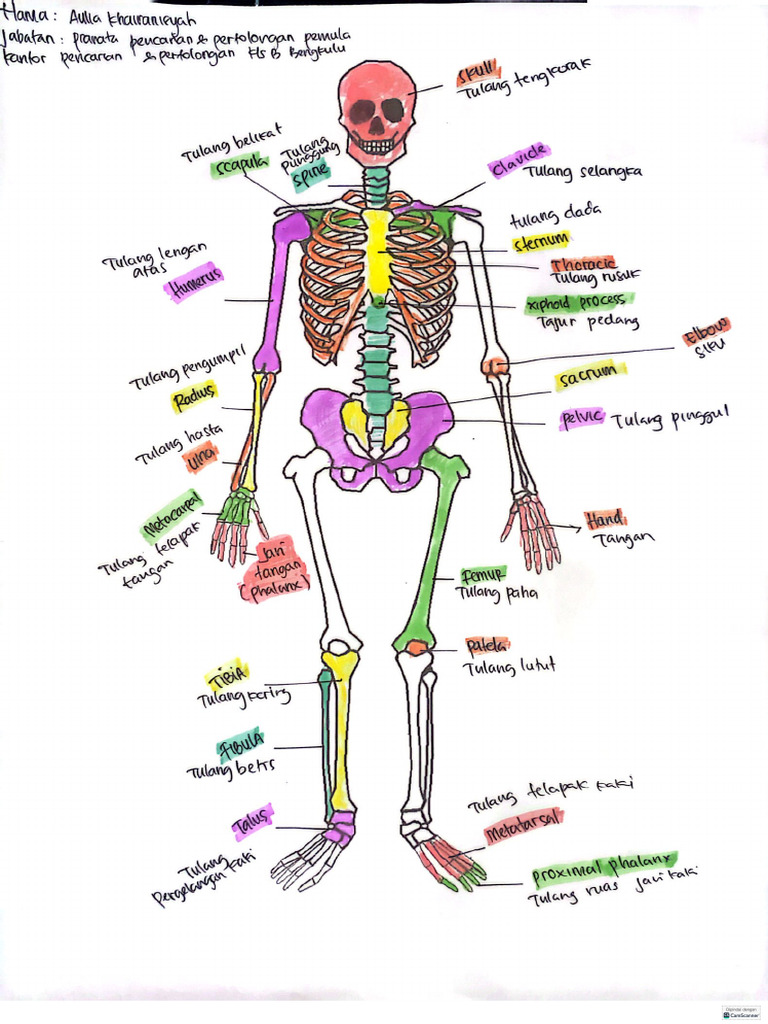 Nama : Aulia Khairanisyah
Jabatan : pranata pencarian & pertolongan pemula
kantor pencarian & pertolongan kls B Bengkulu
skull
Tulang tengkorak
Tulang belikat
scapula
Tulang
punggung
spine
clavicle
Tulang selangka
tulang dada
sternum
Tulang lengan
atas
Humerus
Thoracic
Tulang rusuk
xiphoid process
Tajur pedang
Elbow
siku
Tulang pengumpil
Radius
sacrum
pelvic Tulang pinggul
Tulang hasta
Ulna
Metacarpal
Tulang telapak
tangan
Jari
tangan
(phalanx)
Hand
Tangan
Femur
Tulang paha
patela
Tulang lutut
TIBIA
Tulang kering
FIBULA
Tulang betis
Talus
Tulang
Pergelangan kaki
Tulang telapak kaki
Metatarsal
proximal phalanx
Tulang ruas jari kaki
Dipindai dengan
CamScanner